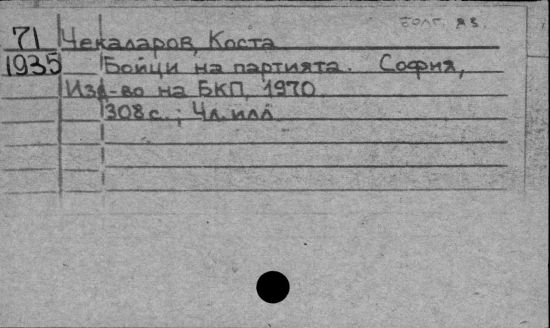 болг. яз.
71 Чекаларов, Коста
1935 Бойци на партията. София,
Изд-во на БКП, 1970.
308 с.; 4 л. илл.